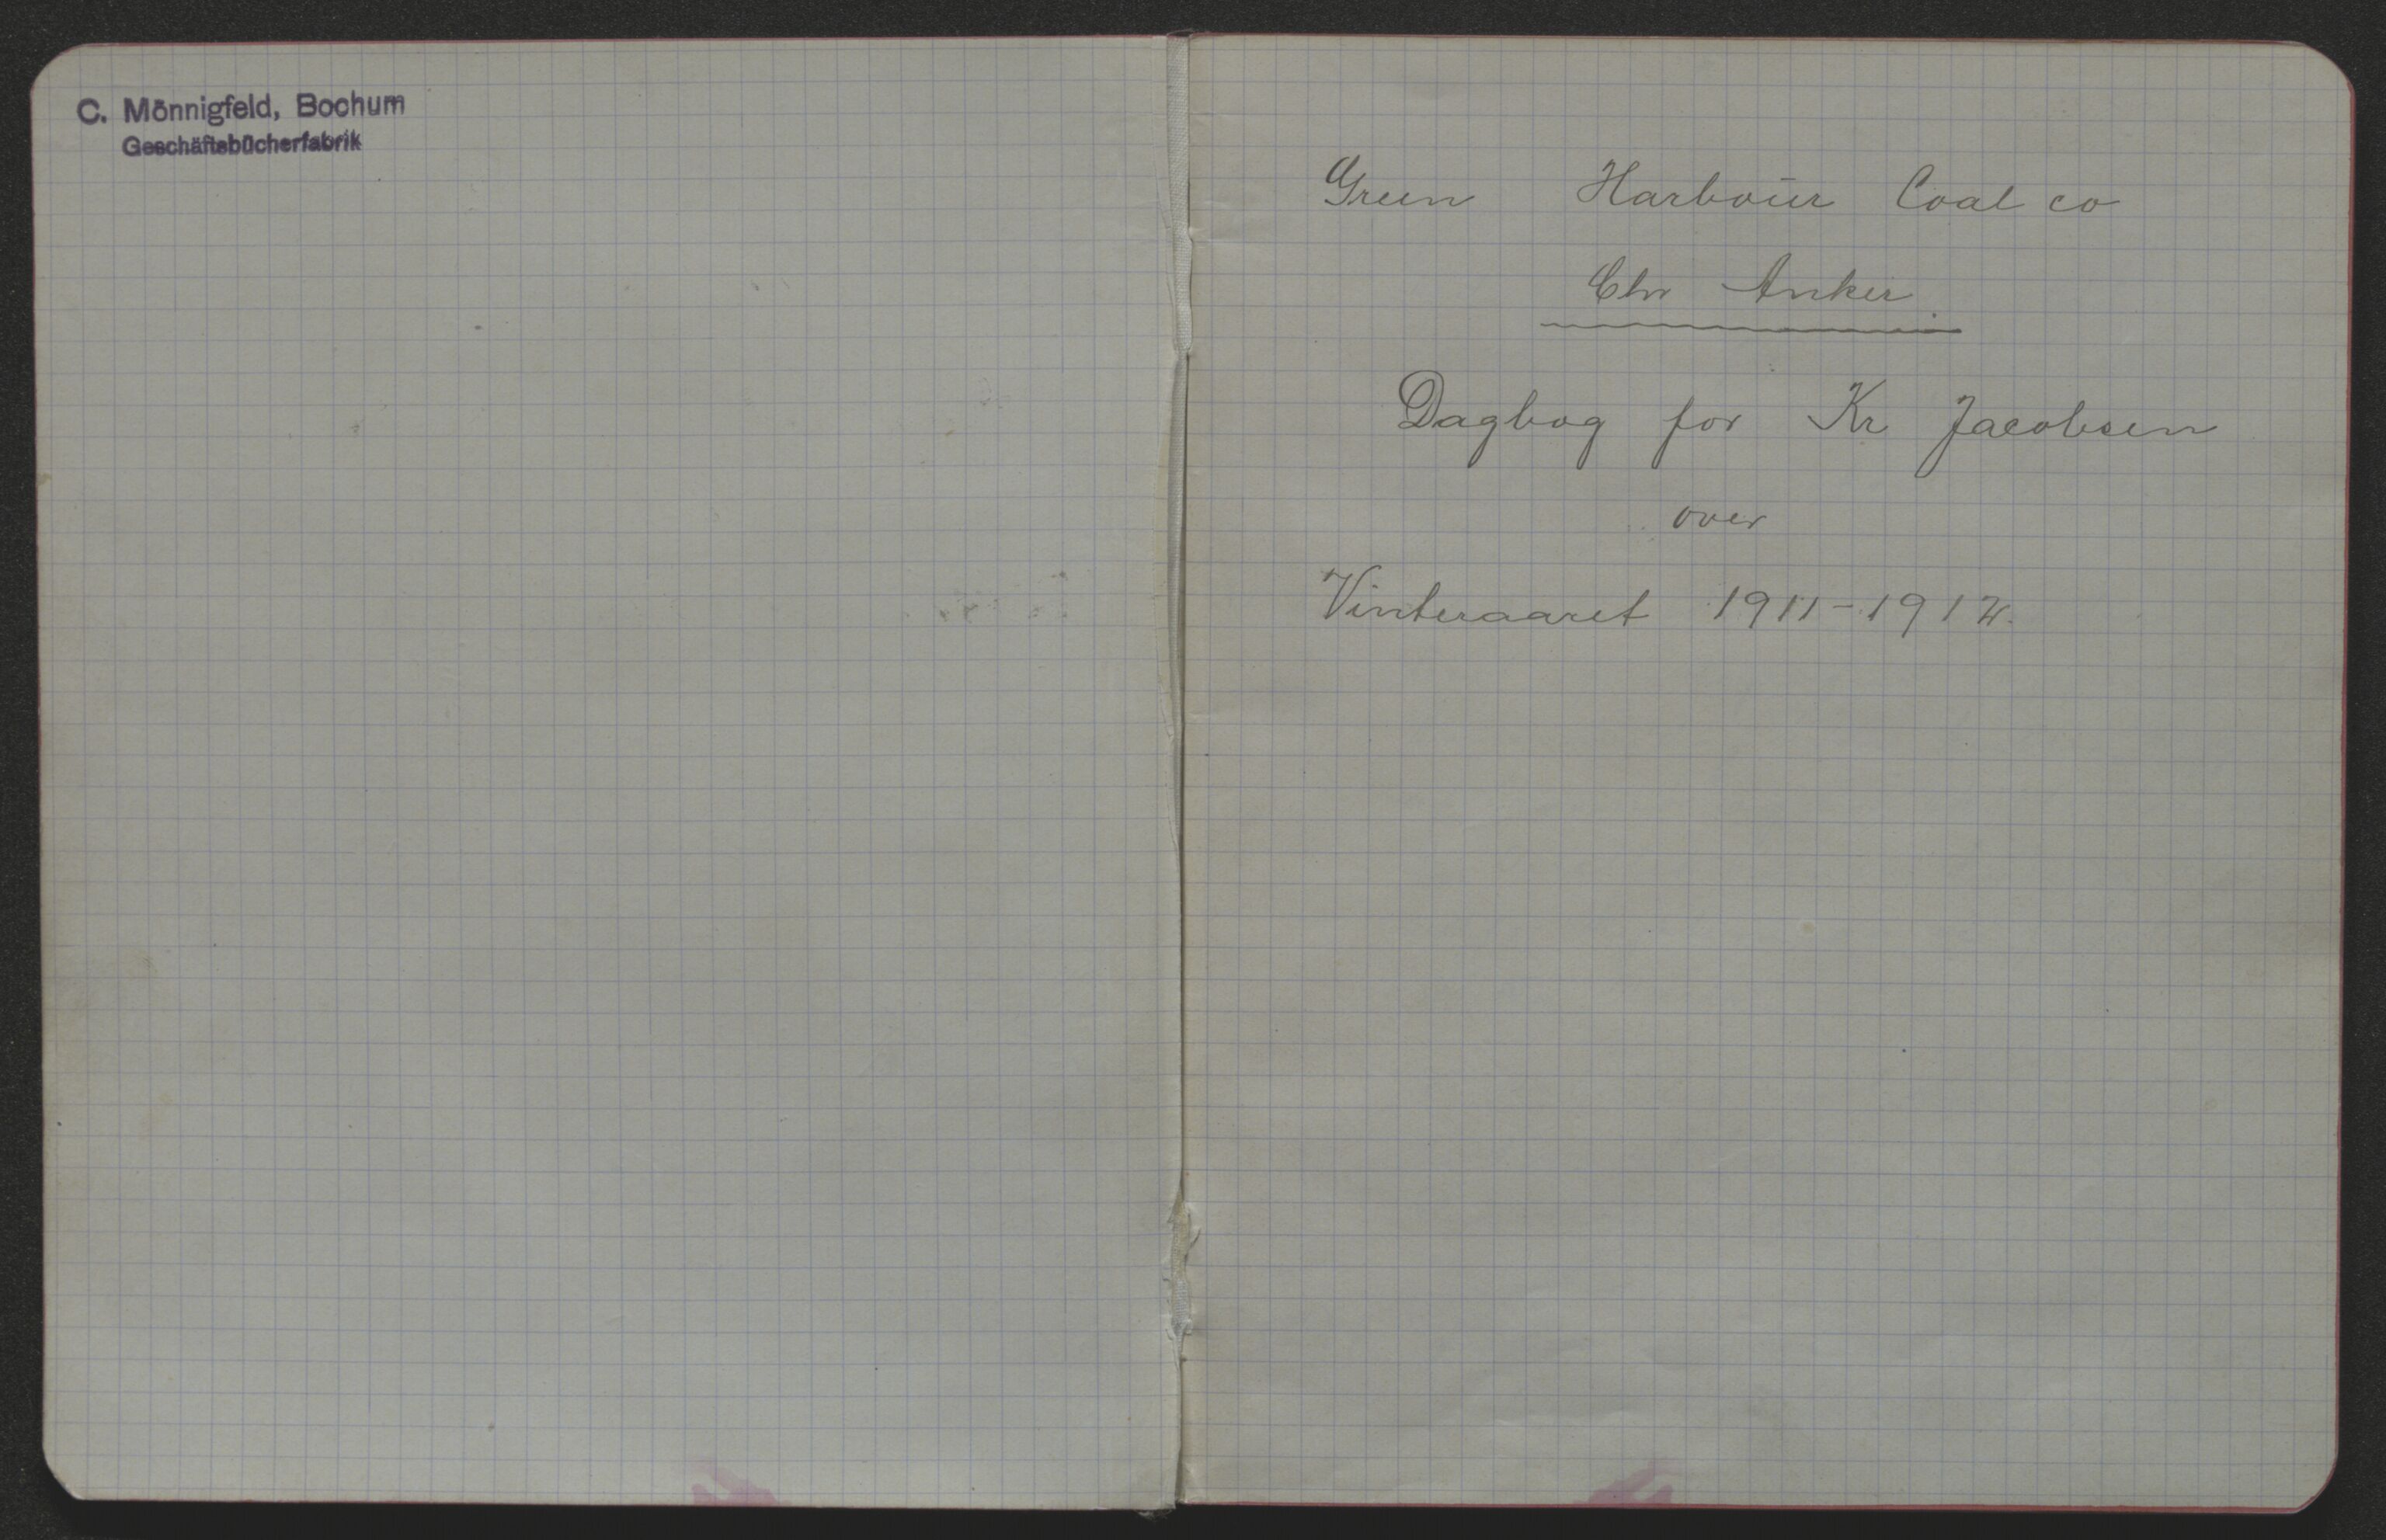 C. Mönnigfeld, Bochum
Geschäftsbücherfabrik
Green Harbour Coal co
Chr Anker
Dagbog for Kr Jacobsen
over
Vinteraaret 1911-1912.